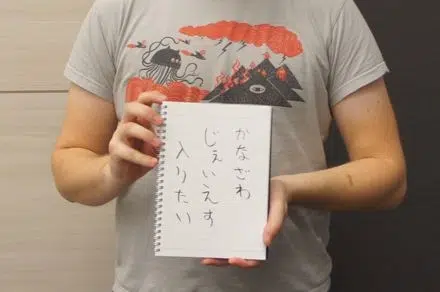 かなざわ
じぇいえす
入りたい